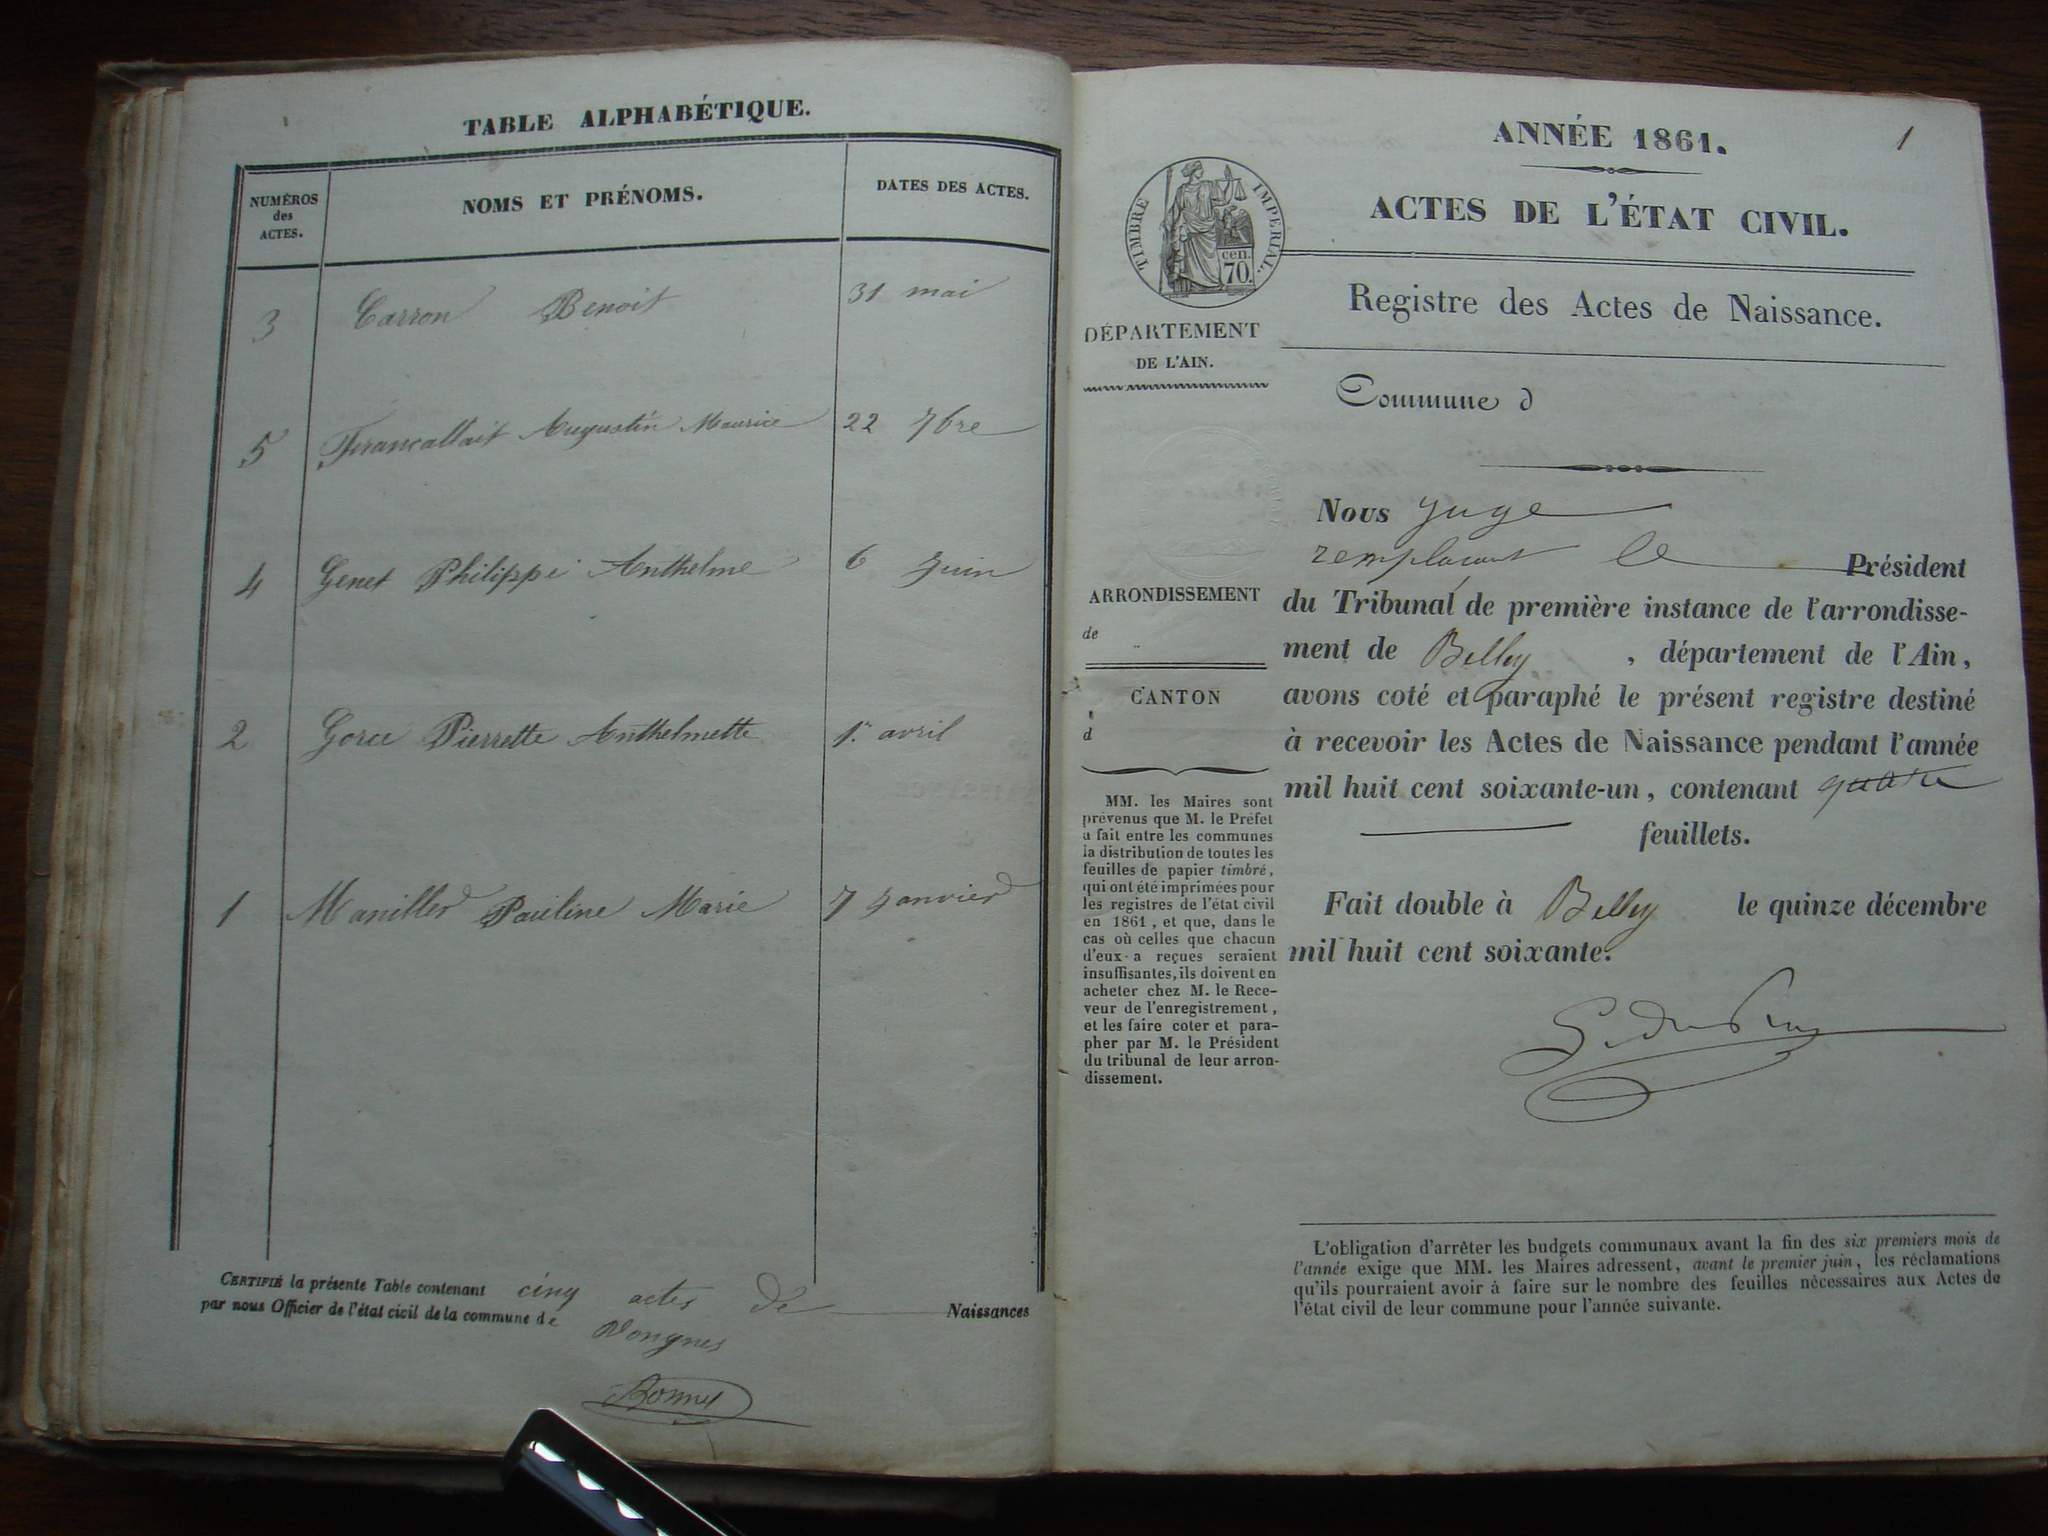 TABLE ALPHABÉTIQUE.
NUMÉROS des ACTES. NOMS ET PRÉNOMS. DATES DES ACTES.
3 Carron Benoit 31 mai
5 Francallait Augustin Maurice 22 7bre
4 Genet Philippe Anthelme 6 Juin
2 Goree Pierrette Anthelmette 1er avril
1 Maniller Pauline Marie 7 Janvier
CERTIFIÉ la présente Table contenant cinq actes de Naissances
par nous Officier de l'état civil de la commune de Vongnes
Bonnet
1
ANNÉE 1861.
ACTES DE L'ÉTAT CIVIL.
TIMBRE IMPERIAL.
cen.
70.
Registre des Actes de Naissance.
DÉPARTEMENT
DE L'AIN.
Commune d
ARRONDISSEMENT
de
CANTON
d
MM. les Maires sont
prévenus que M. le Préfet
a fait entre les communes
la distribution de toutes les
feuilles de papier timbré,
qui ont été imprimées pour
les registres de l'état civil
en 1861, et que, dans le
cas où celles que chacun
d'eux a reçues seraient
insuffisantes, ils doivent en
acheter chez M. le Rece-
veur de l'enregistrement,
et les faire coter et para-
pher par M. le Président
du tribunal de leur arron-
dissement.
Nous Juge
remplacant le Président
du Tribunal de première instance de l'arrondisse-
ment de Belley, département de l'Ain,
avons coté et paraphé le présent registre destiné
à recevoir les Actes de Naissance pendant l'année
mil huit cent soixante-un, contenant quatre
feuillets.
Fait double à Belley le quinze décembre
mil huit cent soixante.
L'obligation d'arrêter les budgets communaux avant la fin des six premiers mois de
l'année exige que MM. les Maires adressent, avant le premier juin, les réclamations
qu'ils pourraient avoir à faire sur le nombre des feuilles nécessaires aux Actes de
l'état civil de leur commune pour l'année suivante.